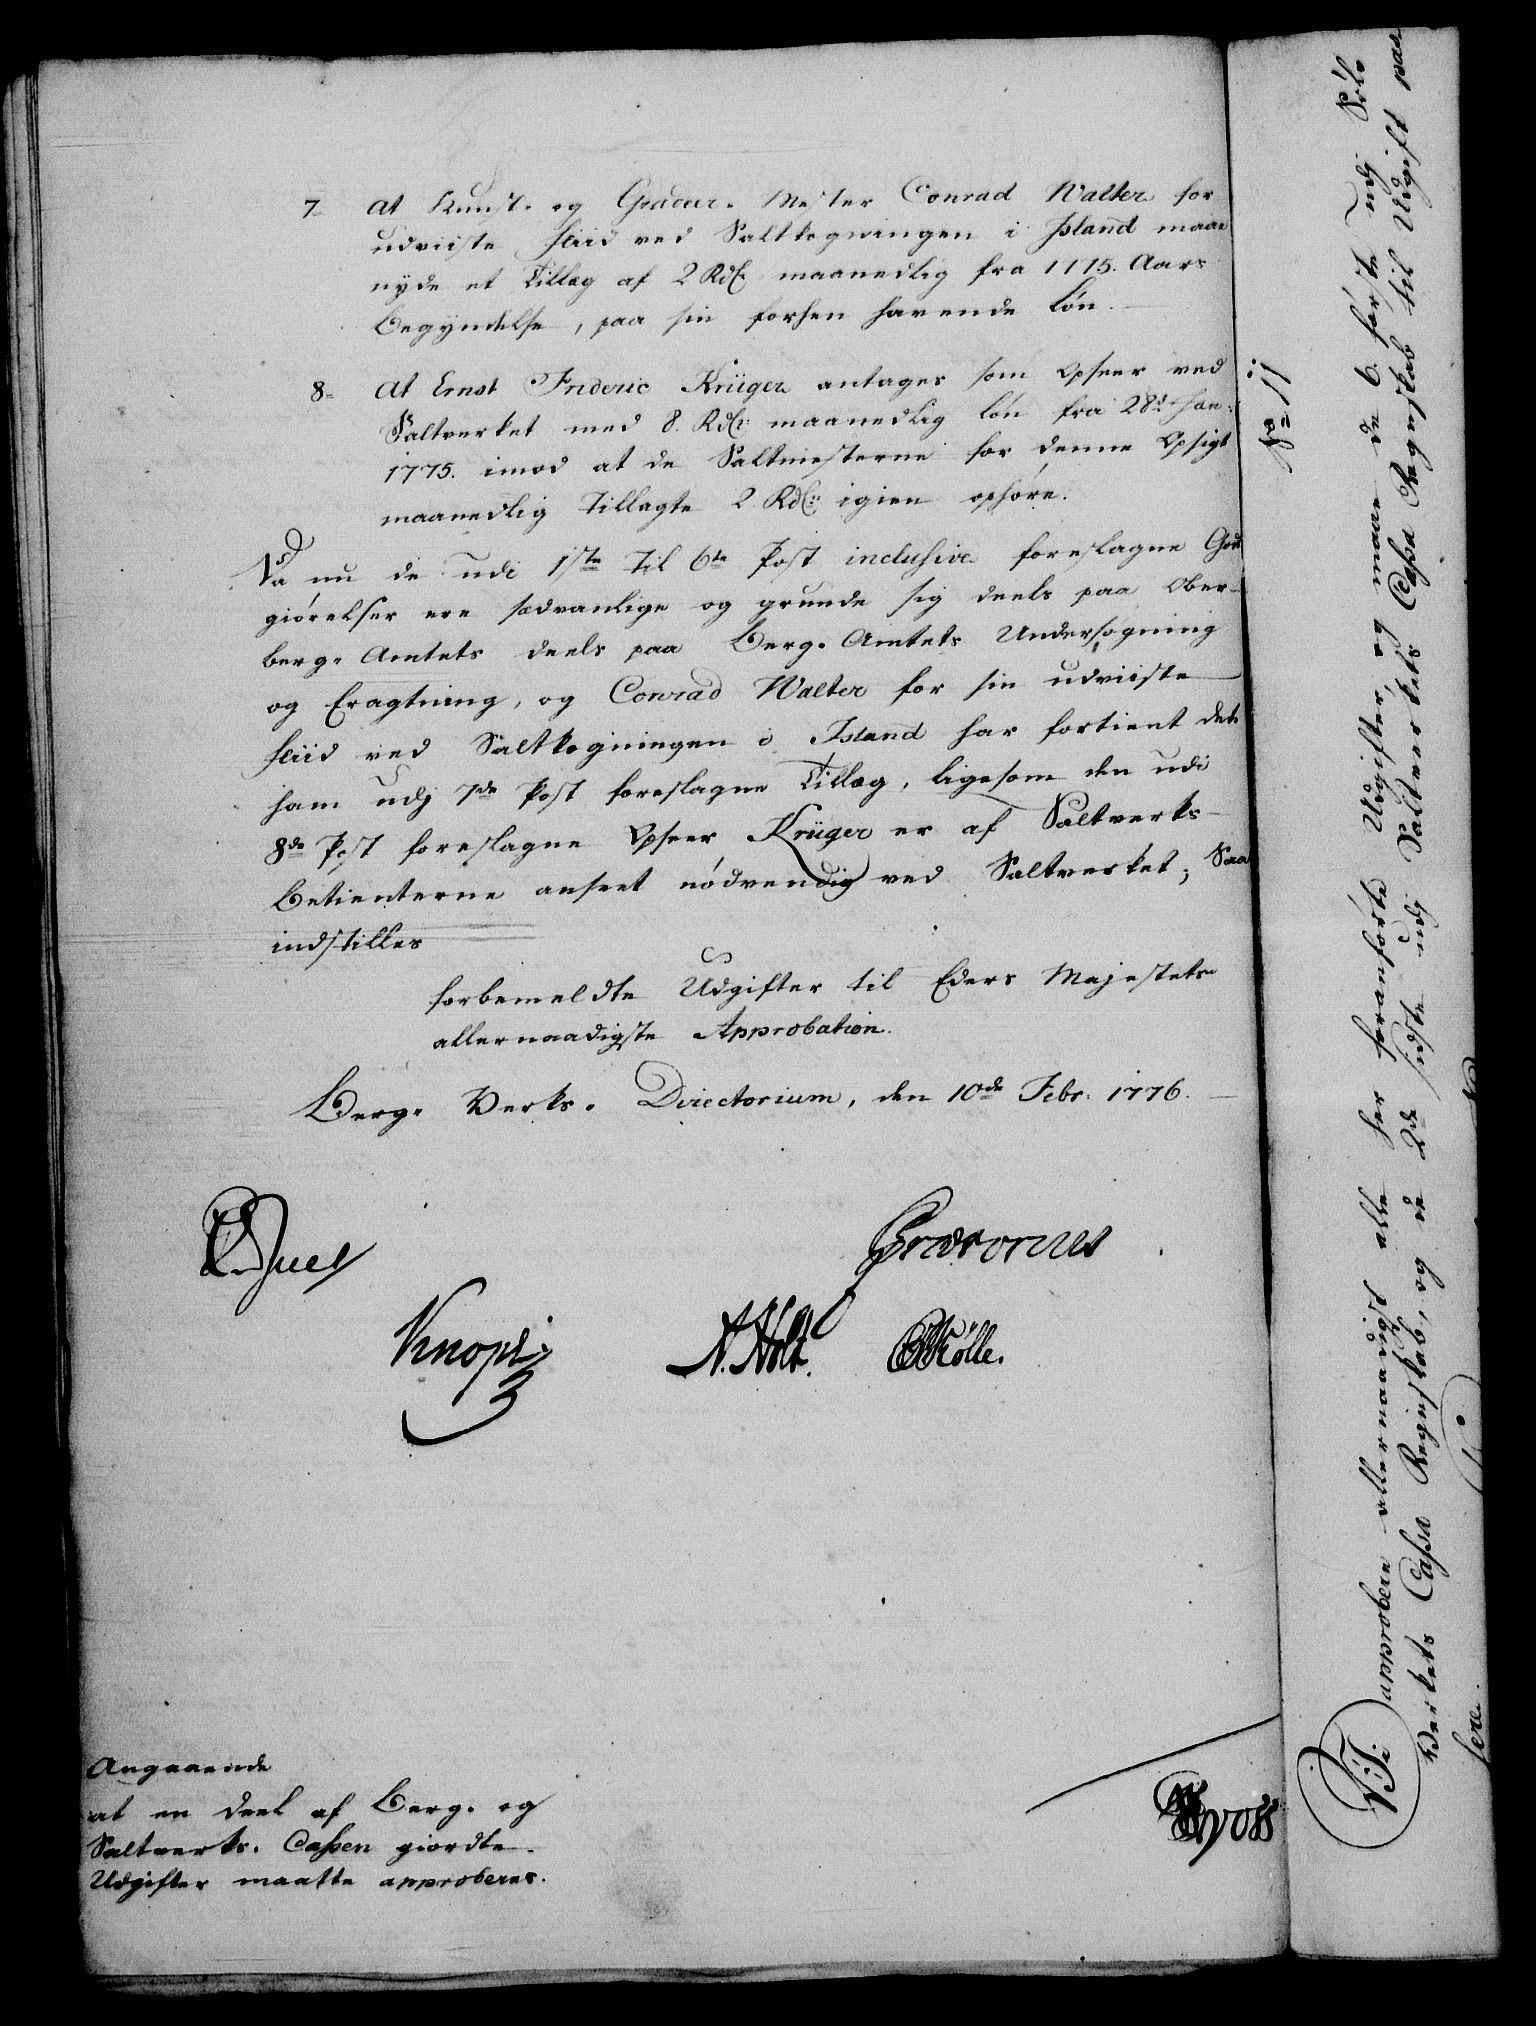 7. at Kunst- og Gradeer- Mester Conrad Walter for
udviiste Fliid ved Saltkogningen i Island maae
nyde et Tillæg af 2 Rdlr maanedlig fra 1775. Aars
Begyndelse, paa sin forhen havende Løn.
8. at Ernst Frideric Krüger antages som Opseer ved
Saltverket med 8. Rdlr maanedlig Løn fra 28de Jan:
1775. imod at de Saltmesterne for denne Opsigt
maanedlig tillagte 2 Rdlr igien ophøre.
Da nu de udi 1ste til 6te Post inclusive foreslagne God-
giørelser ere sædvanlige og grunde sig deels paa Ober-
berg- Amtets deels paa Berg- Amtets Undersøgning
og Eragtning, og Conrad Walter for sin udviiste
Fliid ved Saltkogningen i Island har fortient det
ham udj 7de Post foreslagne Tillæg, ligesom den udi
8de Post foreslagne Opseer Krüger er af Saltverks-
Betienterne anseet nødvendig ved Saltverket; Saa
indstilles
forbemeldte Udgifter til Eders Majestets
allernaadigste Approbation.
Berg- Verks- Directorium, den 10de Febr: 1776.
Juel
Knoph
A. Holt.
Kølle.
Angaaende
at en Deel af Berg- og
Saltverks- Cassen giordte
Udgifter maatte approberes.
No 11
Vi approbere allernaadigst alle her foranførte Udgifter, og maae de 6. første udj Sølv
Verkets Cassa Regnskab, og de 2de sidste udj Saltverkets Cassa Regnskab til Udgift pas-
sere.